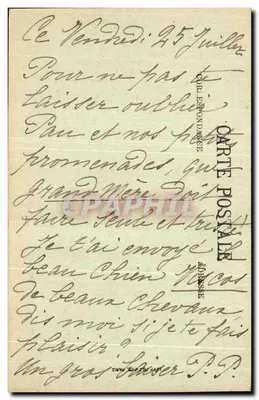 Ce Vendredi 25 Juillet
Pour ne pas te
laisser oublier
Pau et nos petites
promenades, que
grand Mère doit
faire seule et triste
Je t'ai envoyé le
beau chien
de beaux chevaux,
dis moi si je te fais
plaisir ?
Un gros baiser P. P.
CARTE POSTALE
CORRESPONDANCE
ADRESSE